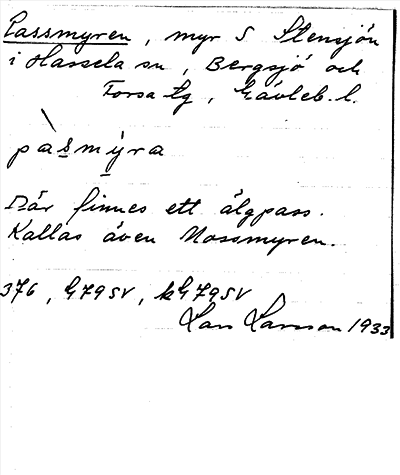 Passmyren, myr S Stensjön
i Hassela sn, Bergsjö och
Forsa tg, Gävleb. l.
pas̲my̲ra
Där finnes ett älgpass.
Kallas även Mossmyren.
376, G79SV, kG79SV
Lars Larsson 1933